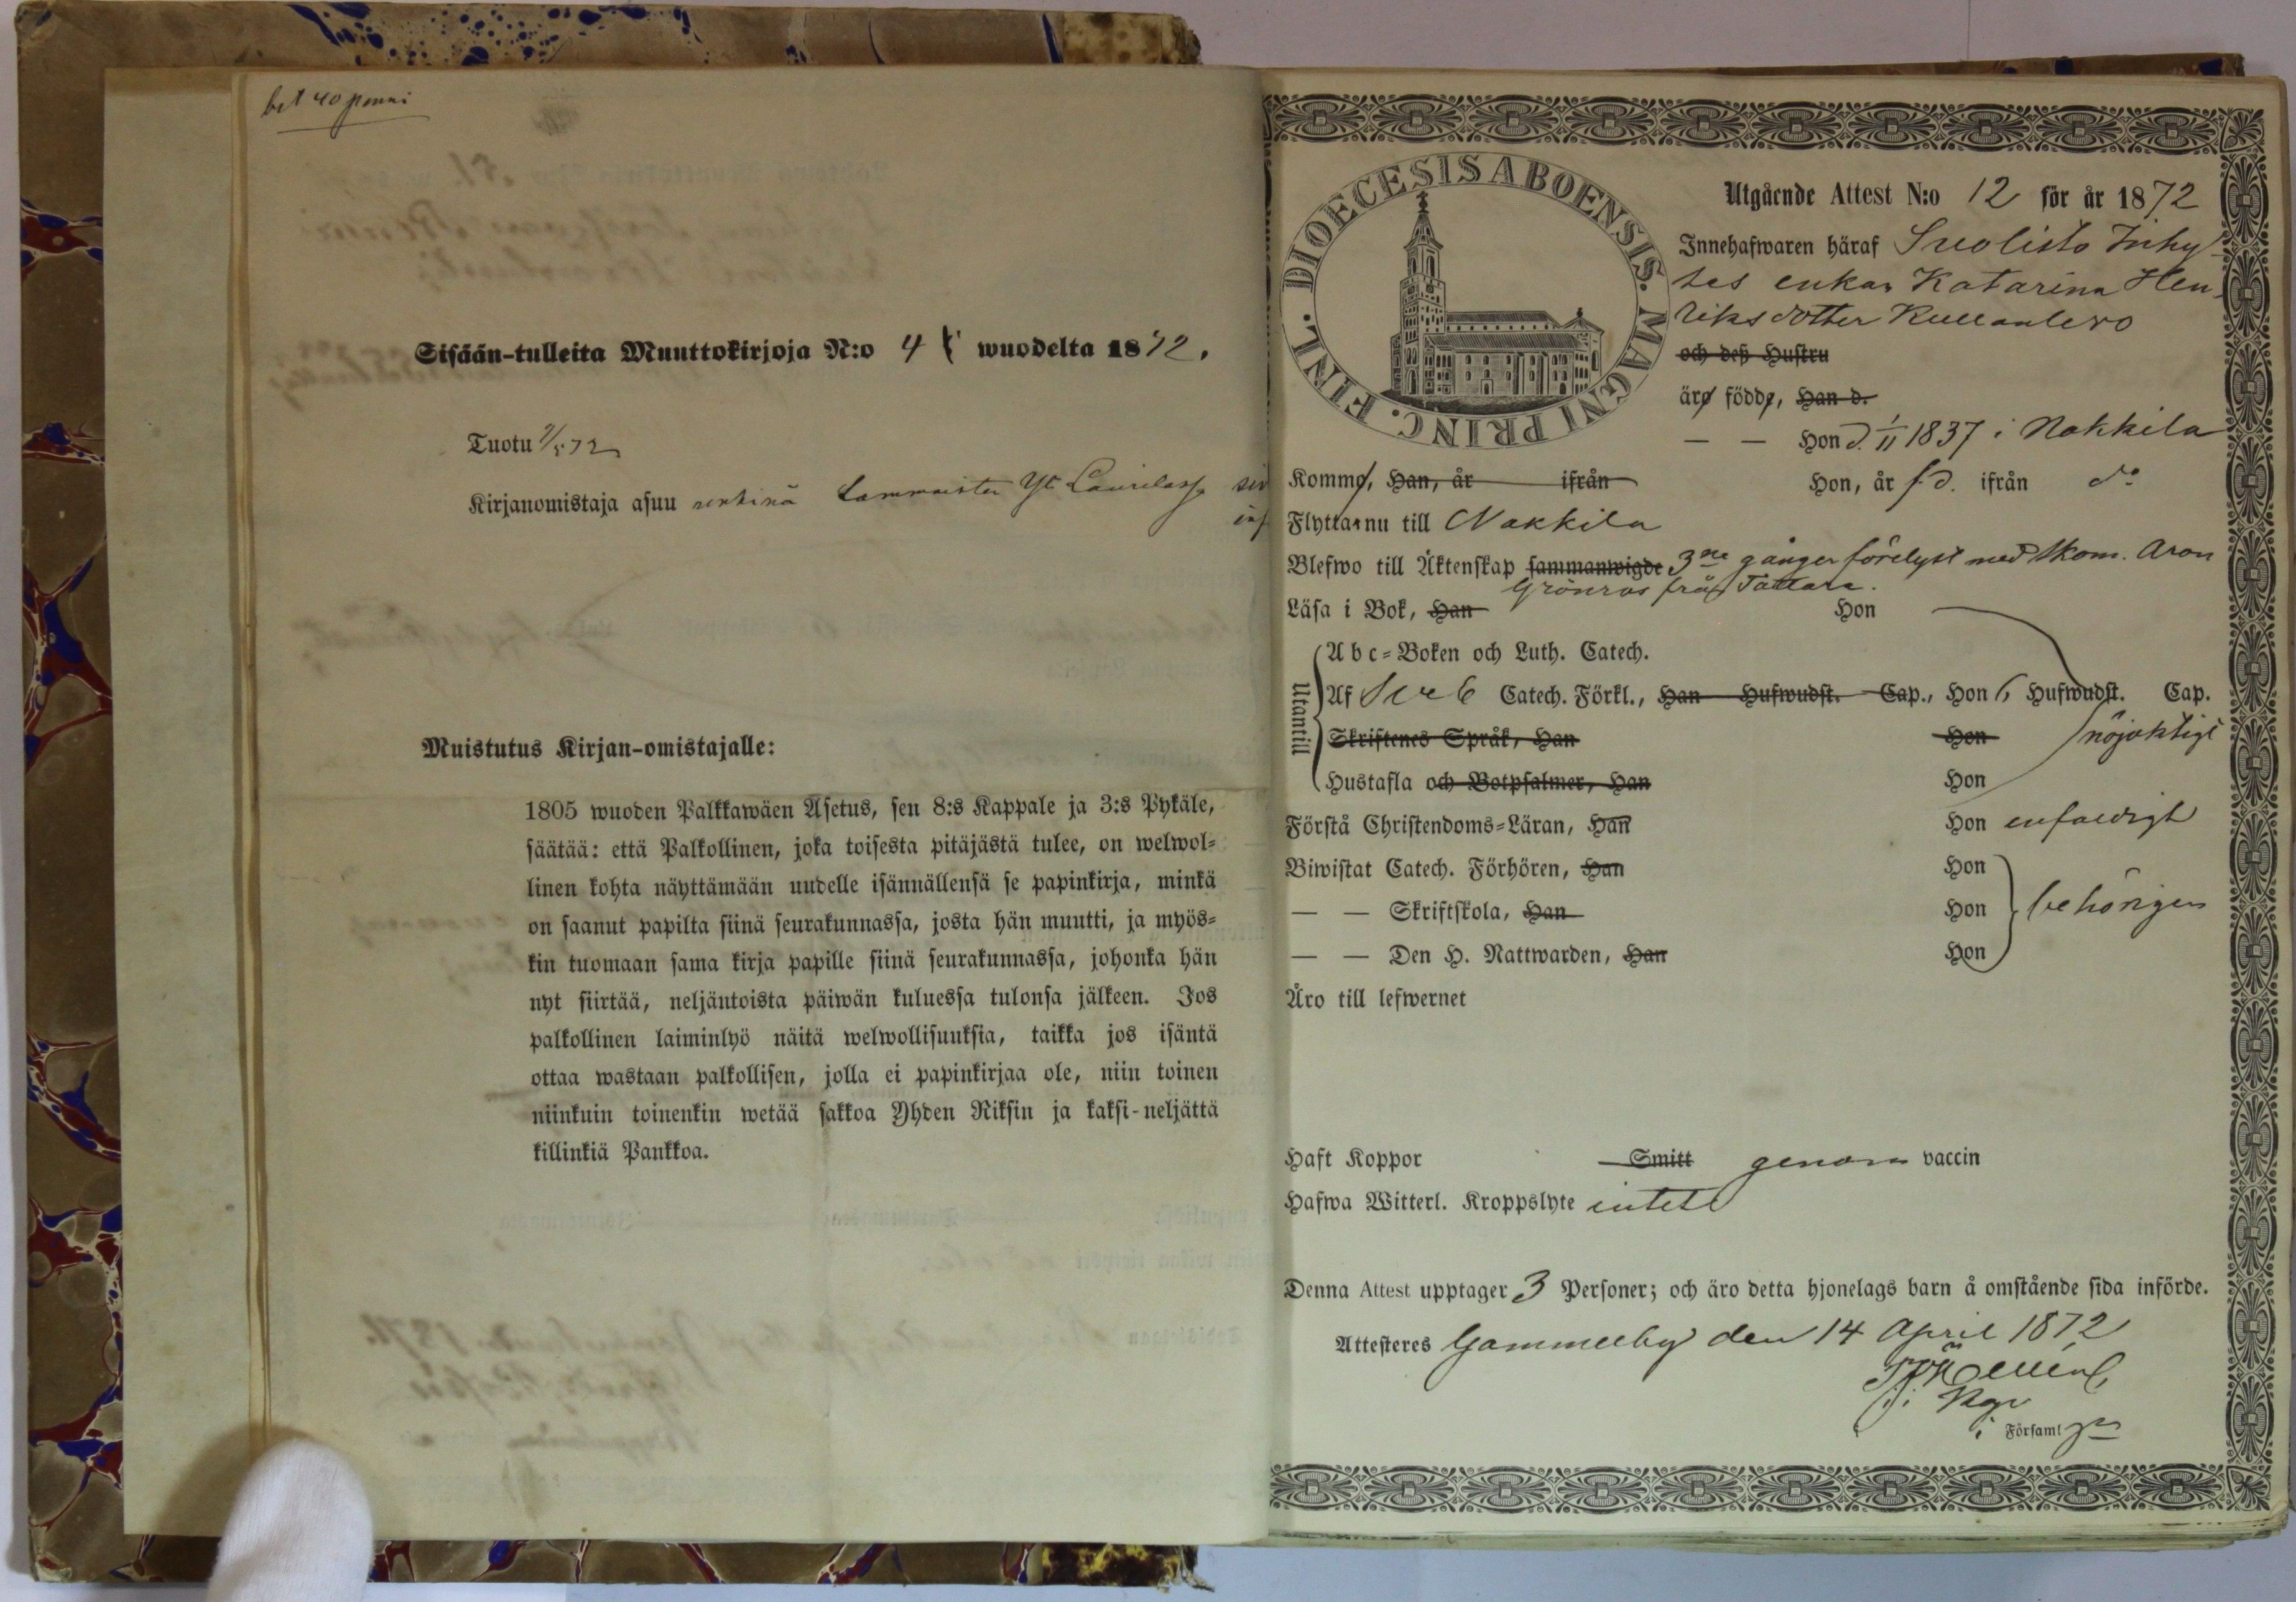 bet 40 penni
Sisään-tulleita Muuttokirjoja N:o 4 wuodelta 1872.
Tuotu
Kirjanomistaja asuu renkinä Lammaisten Yli Laurilassa
Muistutus Kirjan-omistajalle:
1805 wuoden Palkkawäen Asetus, sen 8:s Kappale ja 3:s Pykäle,
säätää: että Palkollinen, joka toisesta pitäjästä tulee, on welwol-
linen kohta näyttämään uudelle isännällensä se papinkirja, minkä
on saanut papilta siinä seurakunnassa, josta hän muutti, ja myös-
kin tuomaan sama kirja papille siinä seurakunnassa, johonka hän
nyt siirtää, neljäntoista päiwän kuluessa tulonsa jälkeen. Jos
palkollinen laiminlyö näitä welwollisuuksia, taikka jos isäntä
ottaa wastaan palkollisen, jolla ei papinkirjaa ole, niin toinen
niinkuin toinenkin wetää sakkoa Yhden Riksin ja kaksi-neljättä
killinkiä Pankkoa.
DIOECESIS ABOENSIS. MAGNI PRINC. FINL.
Utgående Attest N:o 12 för år 1872
Innehafwaren häraf Suolisto Inhy-
ses enkan Katarina Hen-
riksdotter Kullanlevo
och deß Hustru
äro födde, Han d.
— — Hon d. 1/11 1837 i Nakkila
Komme, Han, år ifrån Hon, år f.d. ifrån do
Flytta nu till Nakkila
Blefwo till Äktenskap sammanwigde 3ne gånger förelyst med Aron
Grönros från Tattara.
Läsa i Bok, Han Hon
Utantill
A b c-Boken och Luth. Catech.
Af Sveb Catech. Förkl., Han Hufwudst. Cap., Hon 6 Hufwudst. Cap.
Skriftenes Språk, Han Hon nöjaktigt
Hustafla och Botpsalmer, Han Hon
Förstå Christendoms-Läran, Han Hon enfaldigt
Biwistat Catech. Förhören, Han Hon
— — Skriftskola, Han Hon behörigen
— — Den H. Nattwarden, Han Hon
Äro till lefwernet
Haft Koppor Smitt genom vaccin
Hafwa Witterl. Kroppslyte intet
Denna Attest upptager 3 Personer; och äro detta hjonelags barn å omstående sida införde.
Attesteres Gammelby den 14 April 1872
Församl